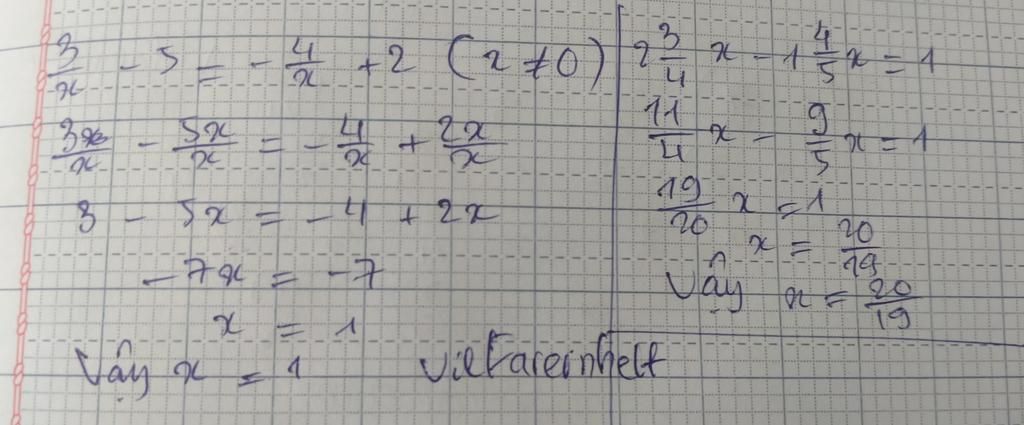 3/x - 5 = -4/x + 2 (x ≠ 0)
3/x - 5x/x = -4/x + 2x/x
3 - 5x = -4 + 2x
-7x = -7
x = 1
Vậy x = 1
2 3/4 x - 1 4/5 x = 1
11/4 x - 9/5 x = 1
19/20 x = 1
x = 20/19
Vậy x = 20/19